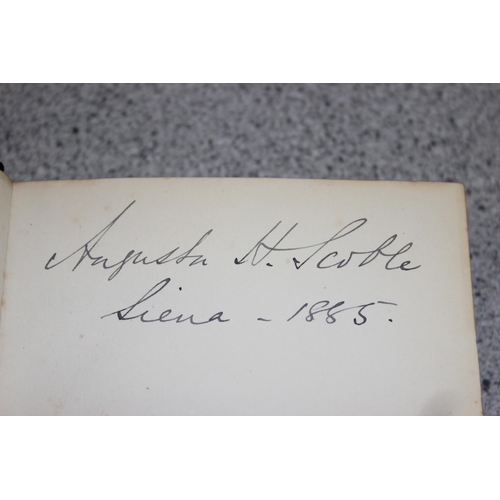 Augusta H. Scoble
Siena - 1885.